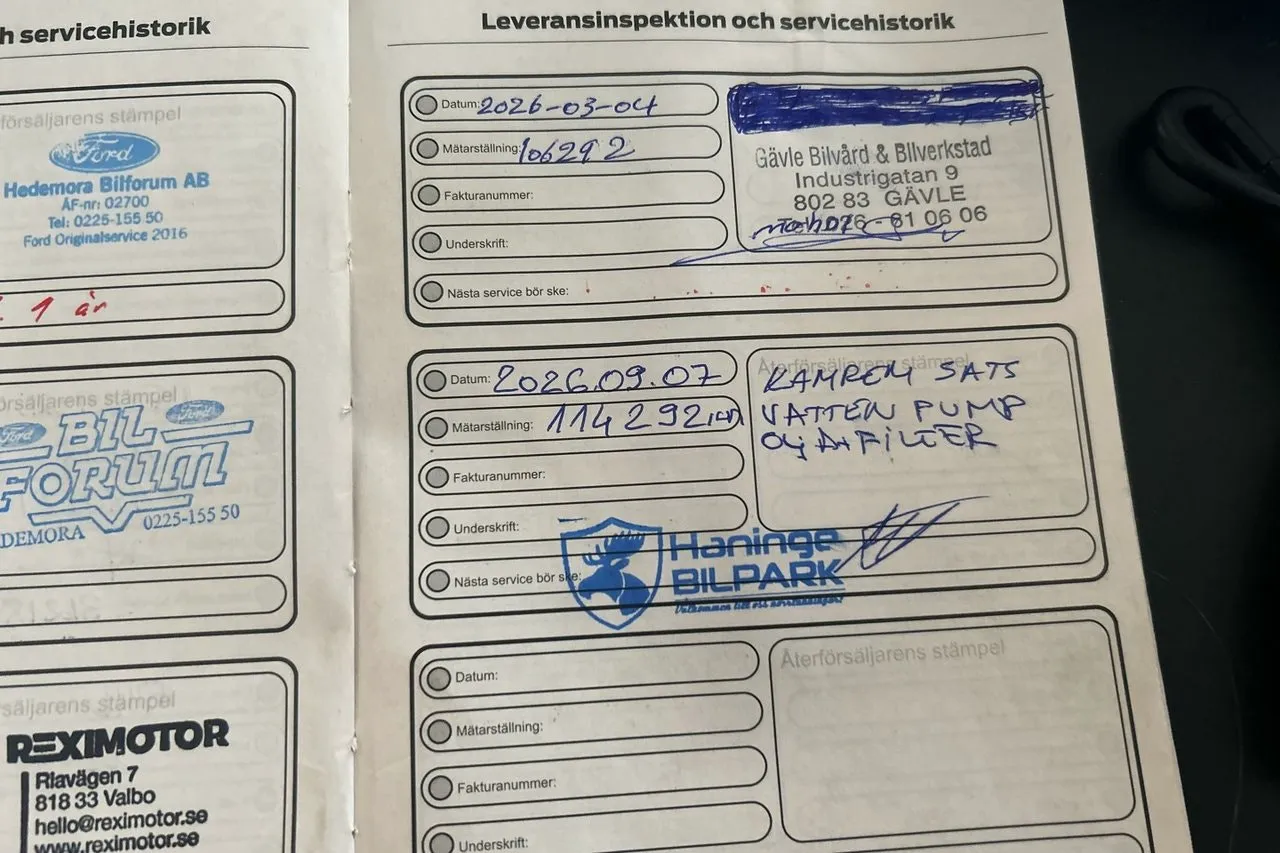 h servicehistorik
försäljarens stämpel
Ford
Hedemora Bilforum AB
ÅF-nr: 02700
Tel: 0225-155 50
Ford Originalservice 2016
1 år
örsäljarens stämpel
Ford
Ford
BIL
FORUM
DEMORA 0225-155 50
säljarens stämpel
REXIMOTOR
Riavägen 7
818 33 Valbo
hello@reximotor.se
www.reximotor.se
Leveransinspektion och servicehistorik
Datum: 2026-03-04
Mätarställning: 106292
Fakturanummer:
Underskrift:
Nästa service bör ske:
Gävle Bilvård & Bilverkstad
Industrigatan 9
802 83 GÄVLE
076-81 06 06
Datum: 2026.09.07
Mätarställning: 114292
Fakturanummer:
Underskrift:
Nästa service bör ske:
Återförsäljarens stämpel
KAMREM SATS
VATTEN PUMP
OLJA FILTER
Haninge
BILPARK
Välkommen till oss
Datum:
Mätarställning:
Fakturanummer:
Underskrift:
Återförsäljarens stämpel